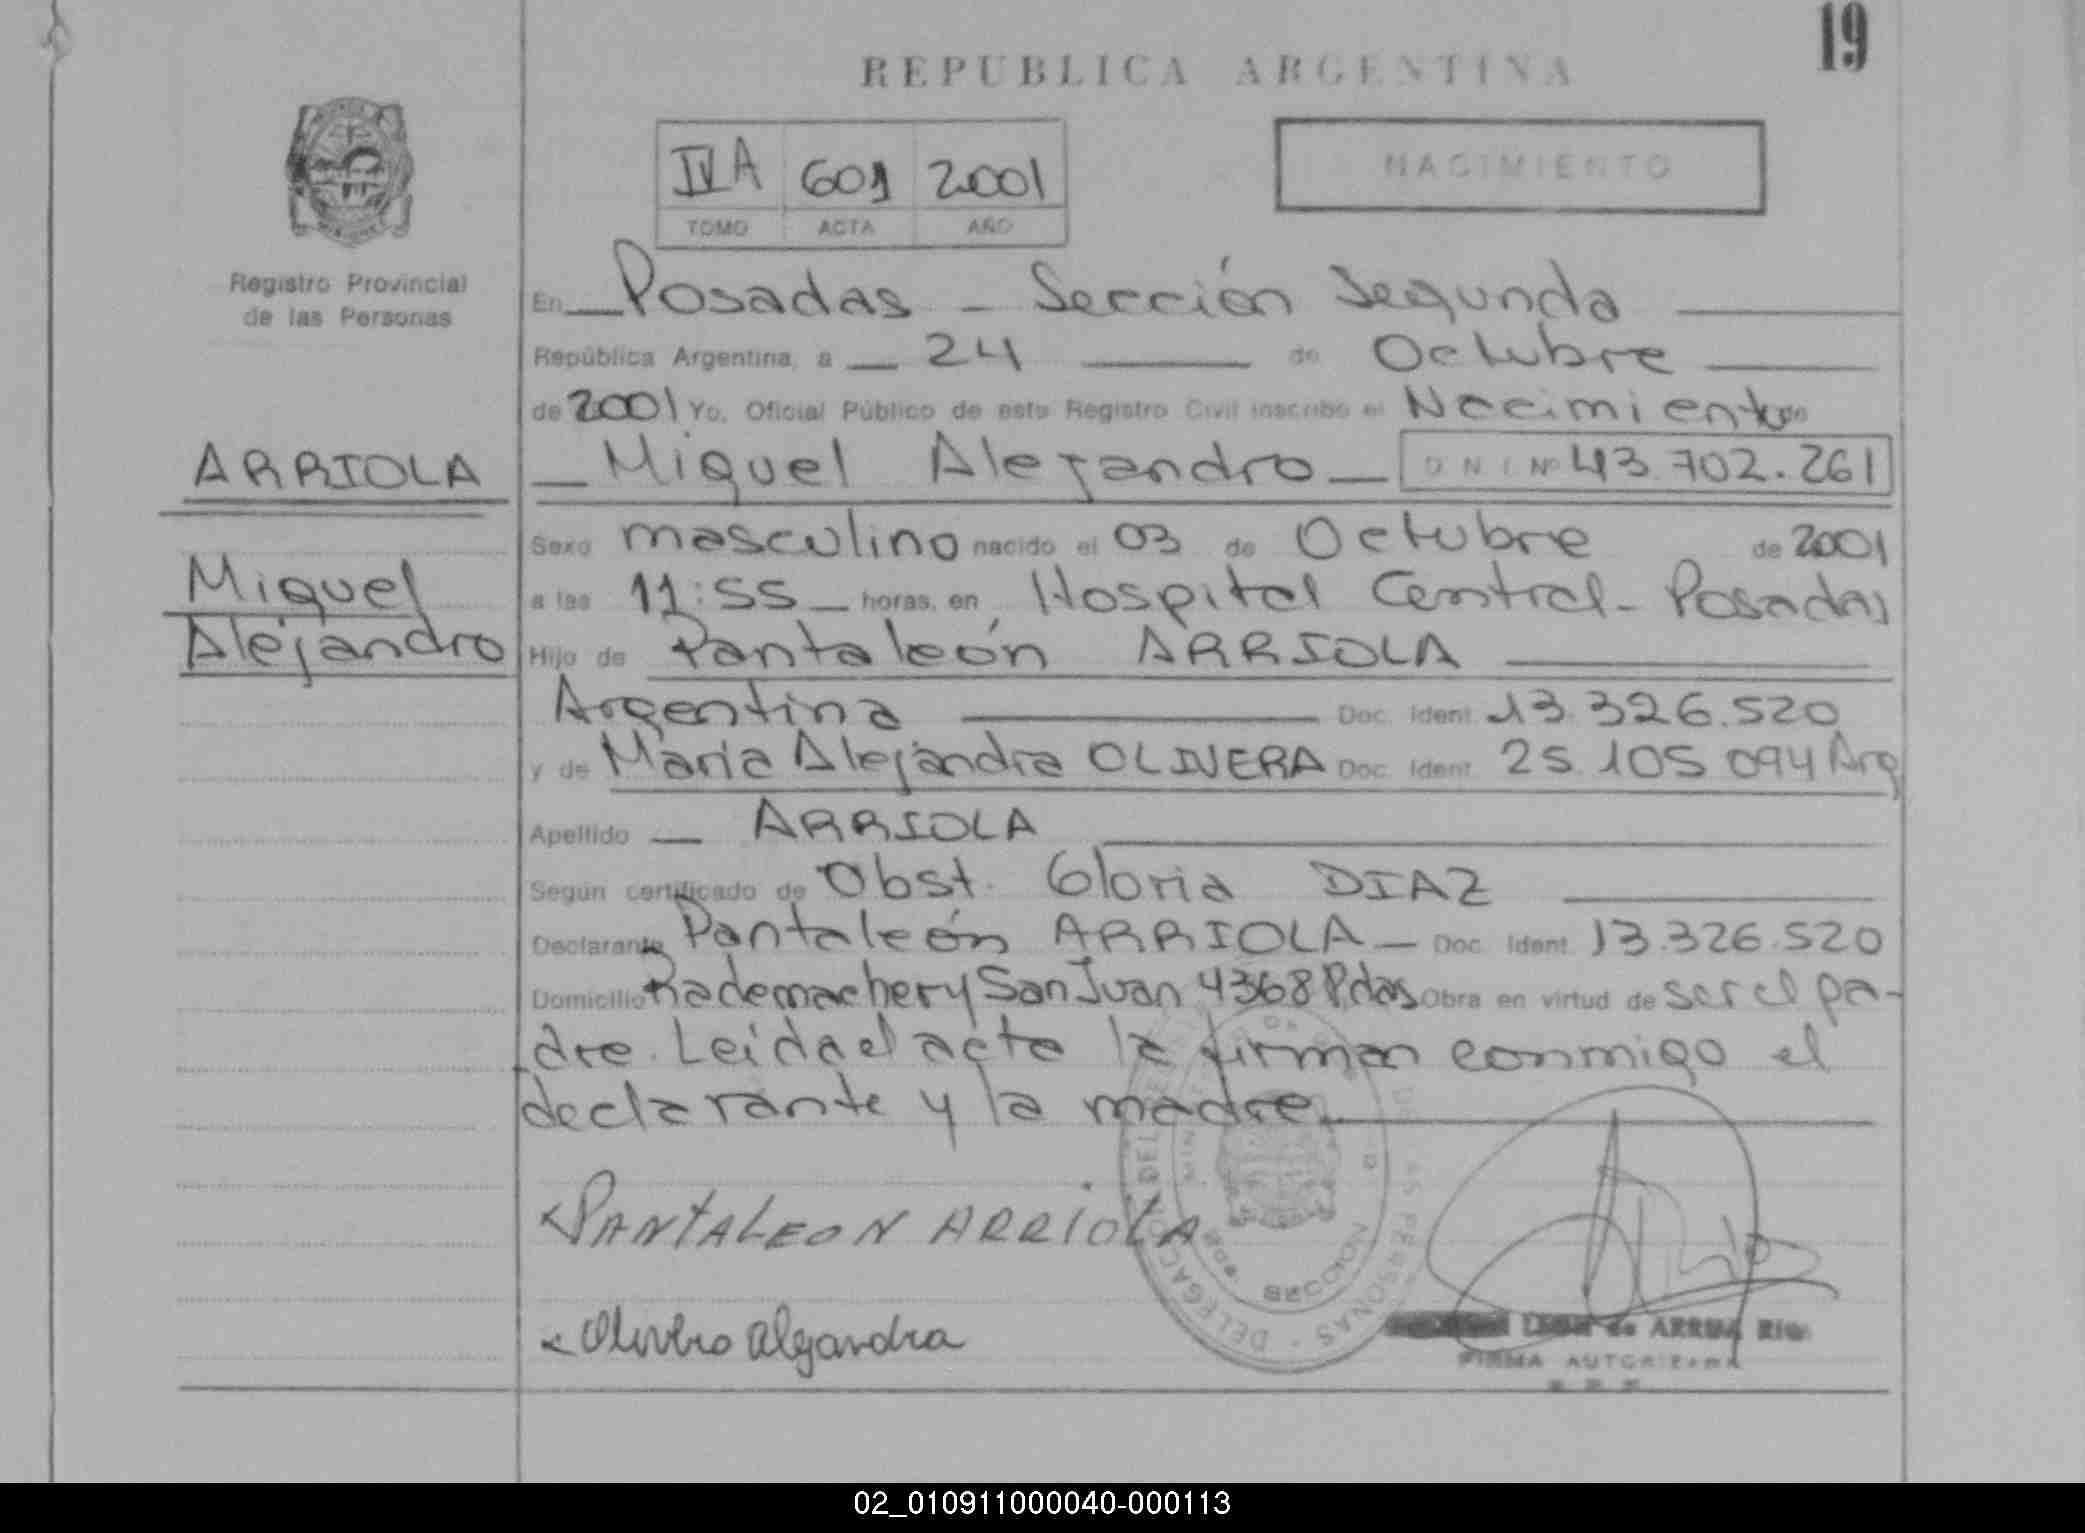 19
REPUBLICA ARGENTINA
IVA 601 2001
TOMO ACTA AÑO
NACIMIENTO
Registro Provincial
de las Personas
En Posadas - Sección Segunda
República Argentina, a 24 de Octubre
de 2001 Yo, Oficial Público de este Registro Civil inscribo el Nacimiento de
ARRIOLA
Miguel Alejandro D N I Nº 43.702.261
Miguel
Alejandro
Sexo masculino nacido el 03 de Octubre de 2001
a las 11:55 horas, en Hospital Central - Posadas
Hijo de Pantaleón ARRIOLA
Argentina Doc. Ident. 13.326.520
y de María Alejandra OLIVERA Doc. Ident. 25.105.094 Arg
Apellido ARRIOLA
Según certificado de Obst. Gloria DIAZ
Declarante Pantaleón ARRIOLA Doc. Ident. 13.326.520
Domicilio Rademacher y San Juan 4368 Pdas Obra en virtud de ser el pa-
dre. Leída el acta la firman conmigo el
declarante y la madre.
PANTALEON ARRIOLA
Olivera Alejandra
SECCION
DELEGACION
PERSONAS
LEON de ARRUA
FIRMA AUTORIZADA
02_010911000040-000113